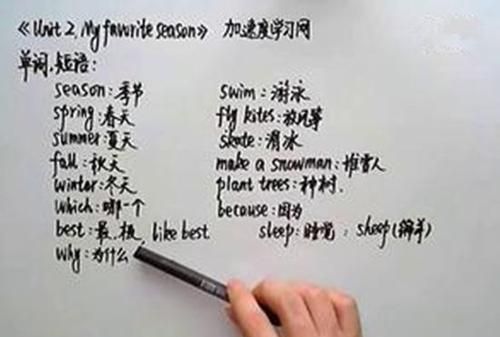 《Unit 2. My favorite season》 加速度学习网
单词.短语:
season:季节 swim:游泳
spring:春天 fly kites:放风筝
summer:夏天 skate:滑冰
fall:秋天 make a snowman:堆雪人
winter:冬天 plant trees:种树.
which:哪一个 because:因为
best:最.极. like best sleep:睡觉: sheep(绵羊)
why:为什么